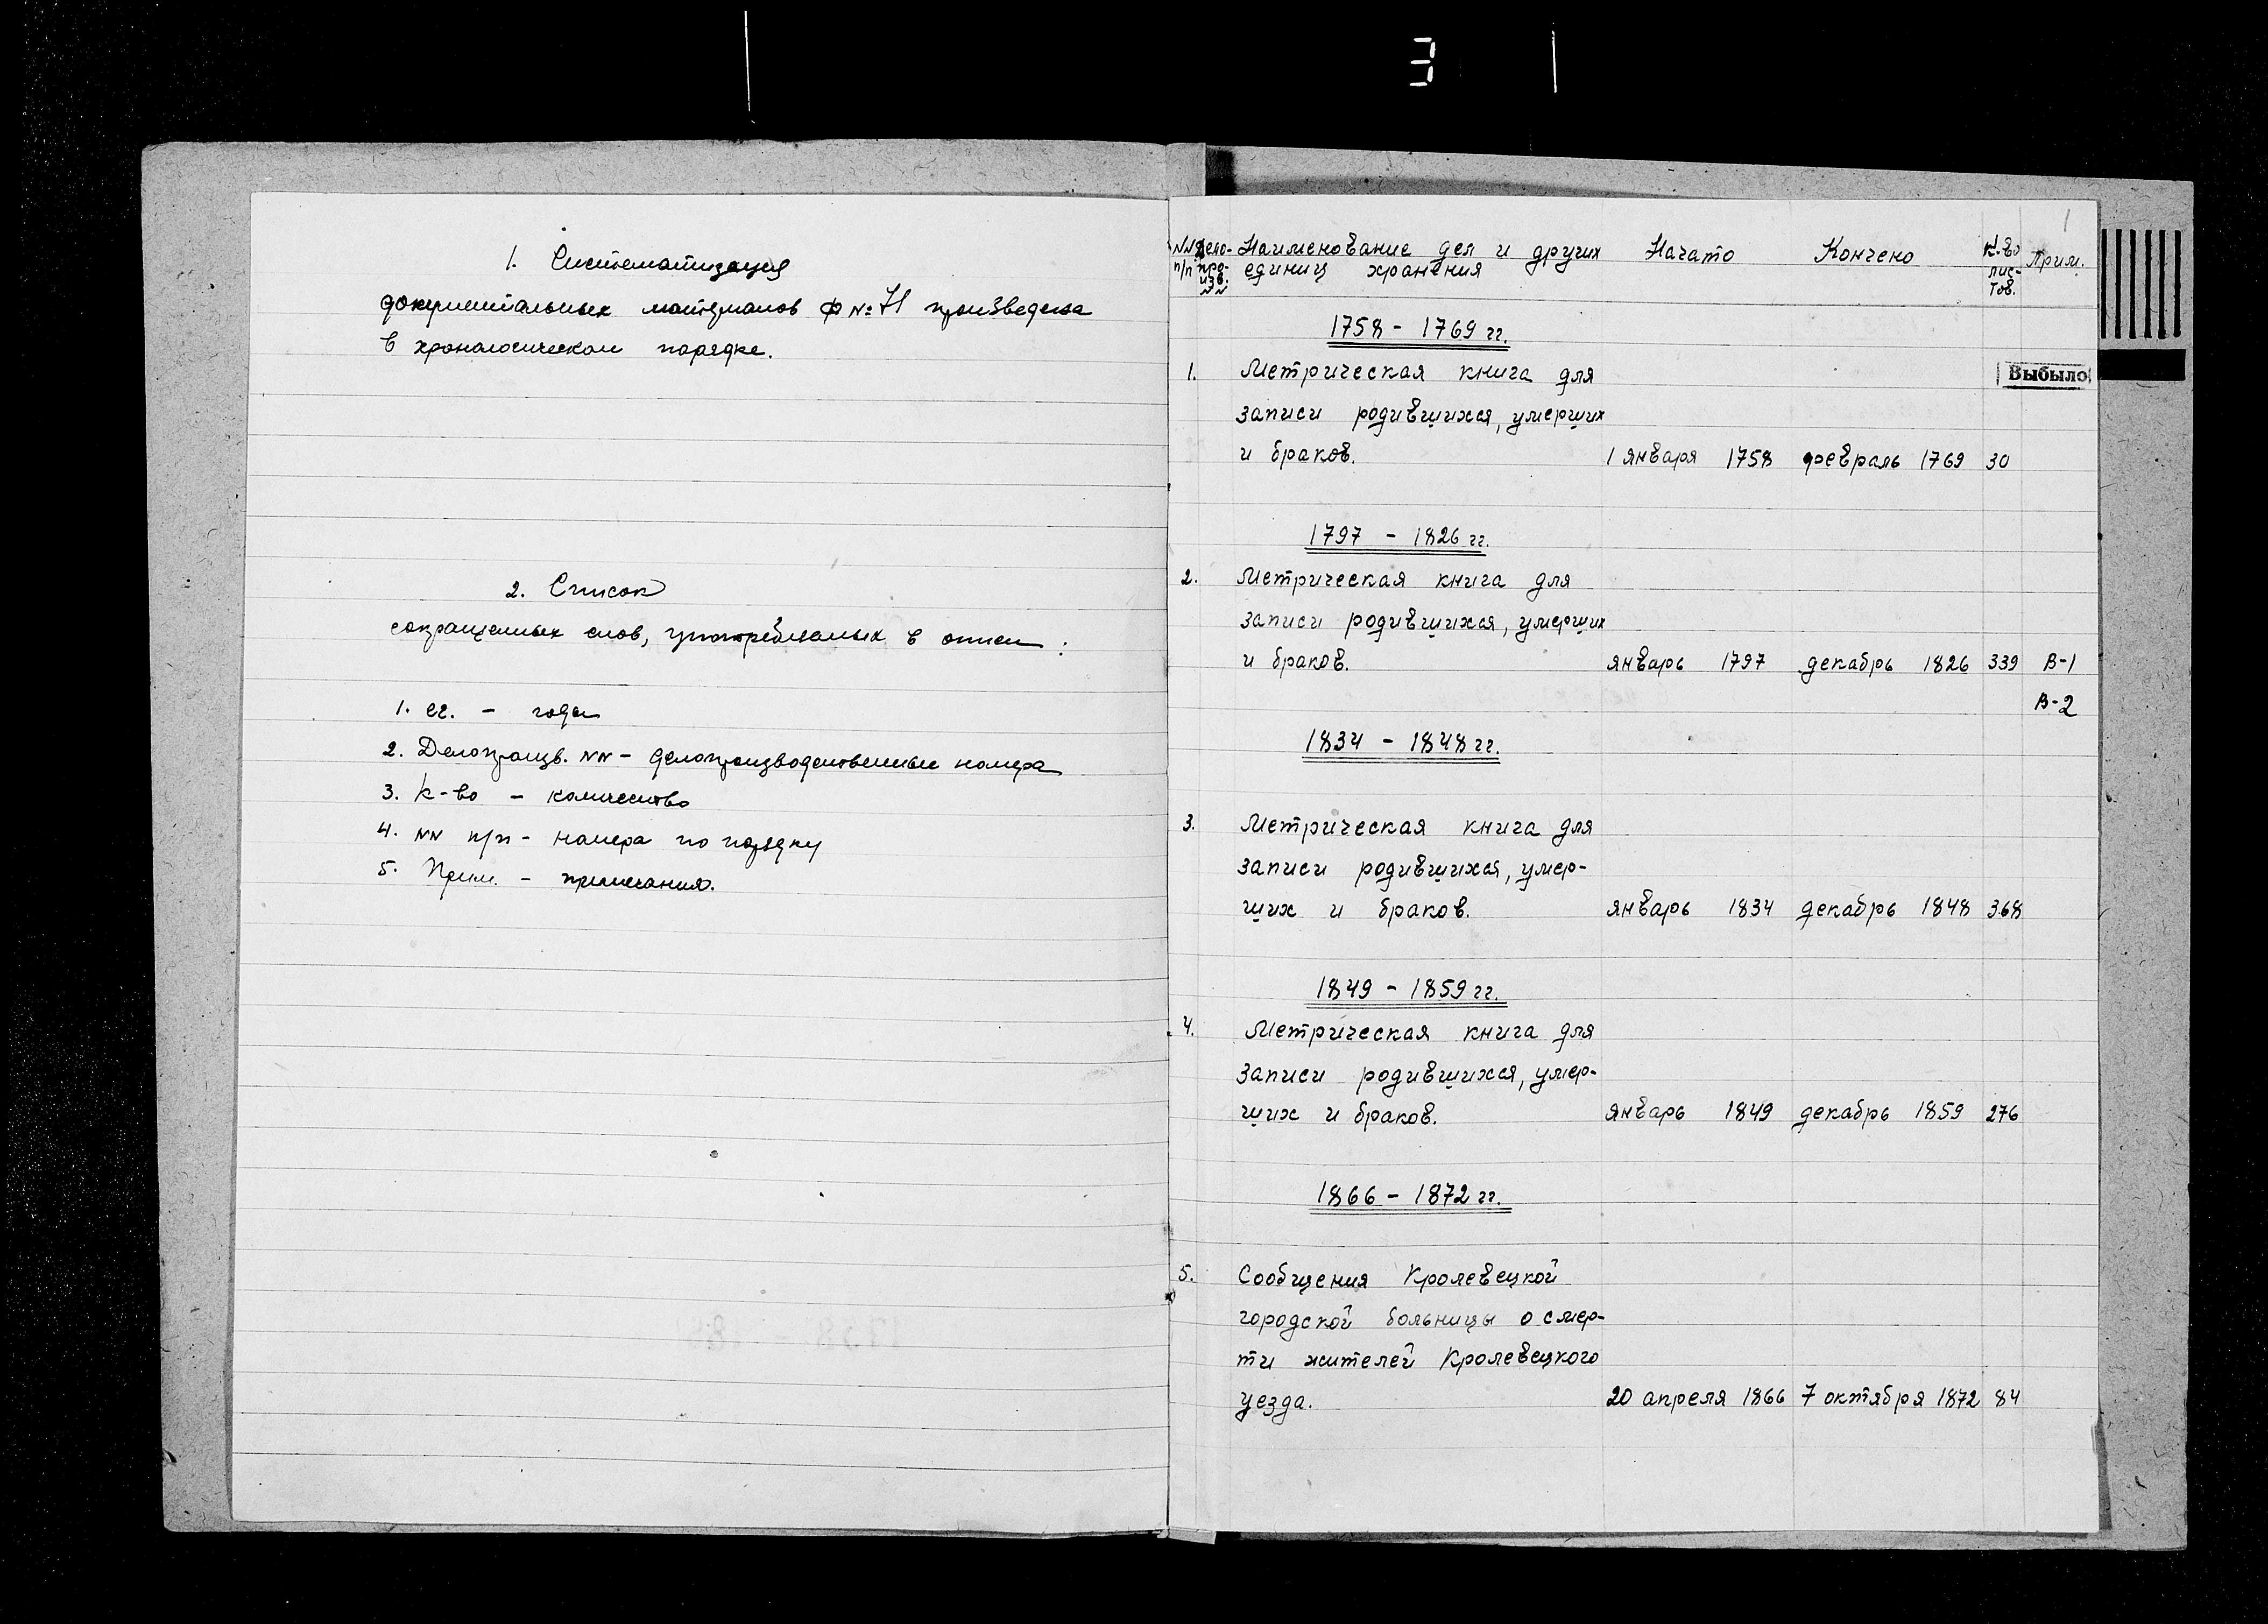 3
1. Систематизация
документальных материалов Ф № 71 произведена
в хронологическом порядке.
2. Список
сокращенных слов, употребляемых в описи:
1. гг. - годы
2. Делопроизв. NN - делопроизводственные номера
3. к-во - количество
4. NN п/п - номера по порядку
5. Прим. - примечания.
1
NN п/п Дело-произв. NN Наименование дел и других единиц хранения Начато Кончено к-во лис-тов. Прим.
1758 - 1769 гг.
1. Метрическая книга для
Выбыло
записи родившихся, умерших
и браков. 1 января 1758 февраль 1769 30
1797 - 1826 гг.
2. Метрическая книга для
записи родившихся, умерших
и браков. январь 1797 декабрь 1826 339 В-1
В-2
1834 - 1848 гг.
3. Метрическая книга для
записи родившихся, умер-
ших и браков. январь 1834 декабрь 1848 368
1849 - 1859 гг.
4. Метрическая книга для
записи родившихся, умер-
ших и браков. январь 1849 декабрь 1859 276
1866 - 1872 гг.
5. Сообщения Кролевецкой
городской больницы о смер-
ти жителей Кролевецкого
уезда. 20 апреля 1866 7 октября 1872 84